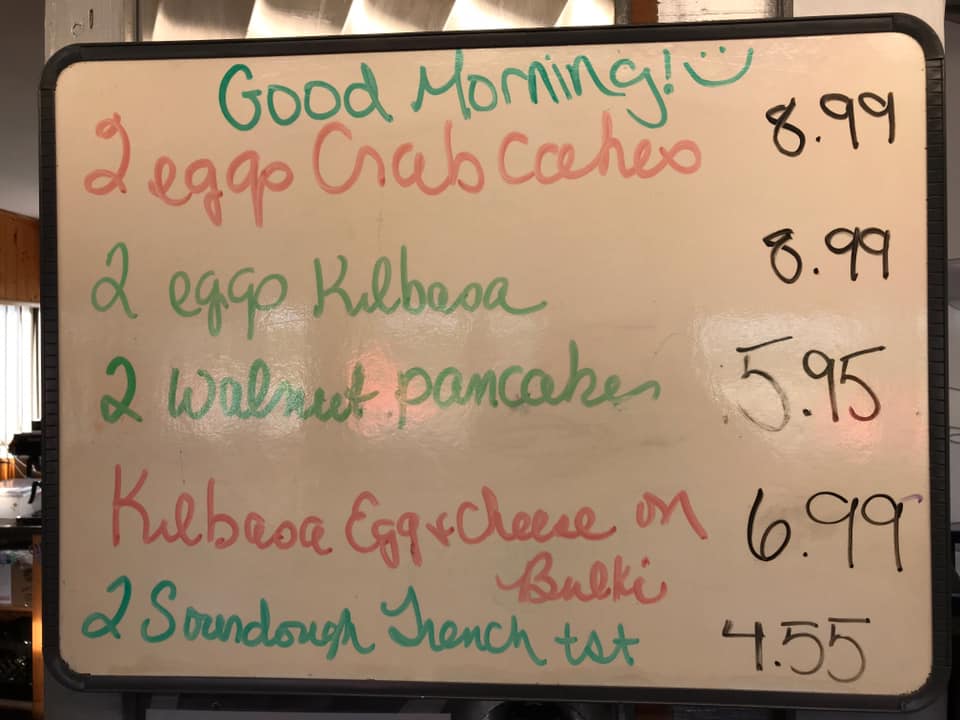 Good Morning! :)
2 eggs Crab Cakes 8.99
2 eggs Kilbasa 8.99
2 Walnut pancakes 5.95
Kilbasa Egg & Cheese on 6.99
Bulki
2 Sourdough French tst 4.55